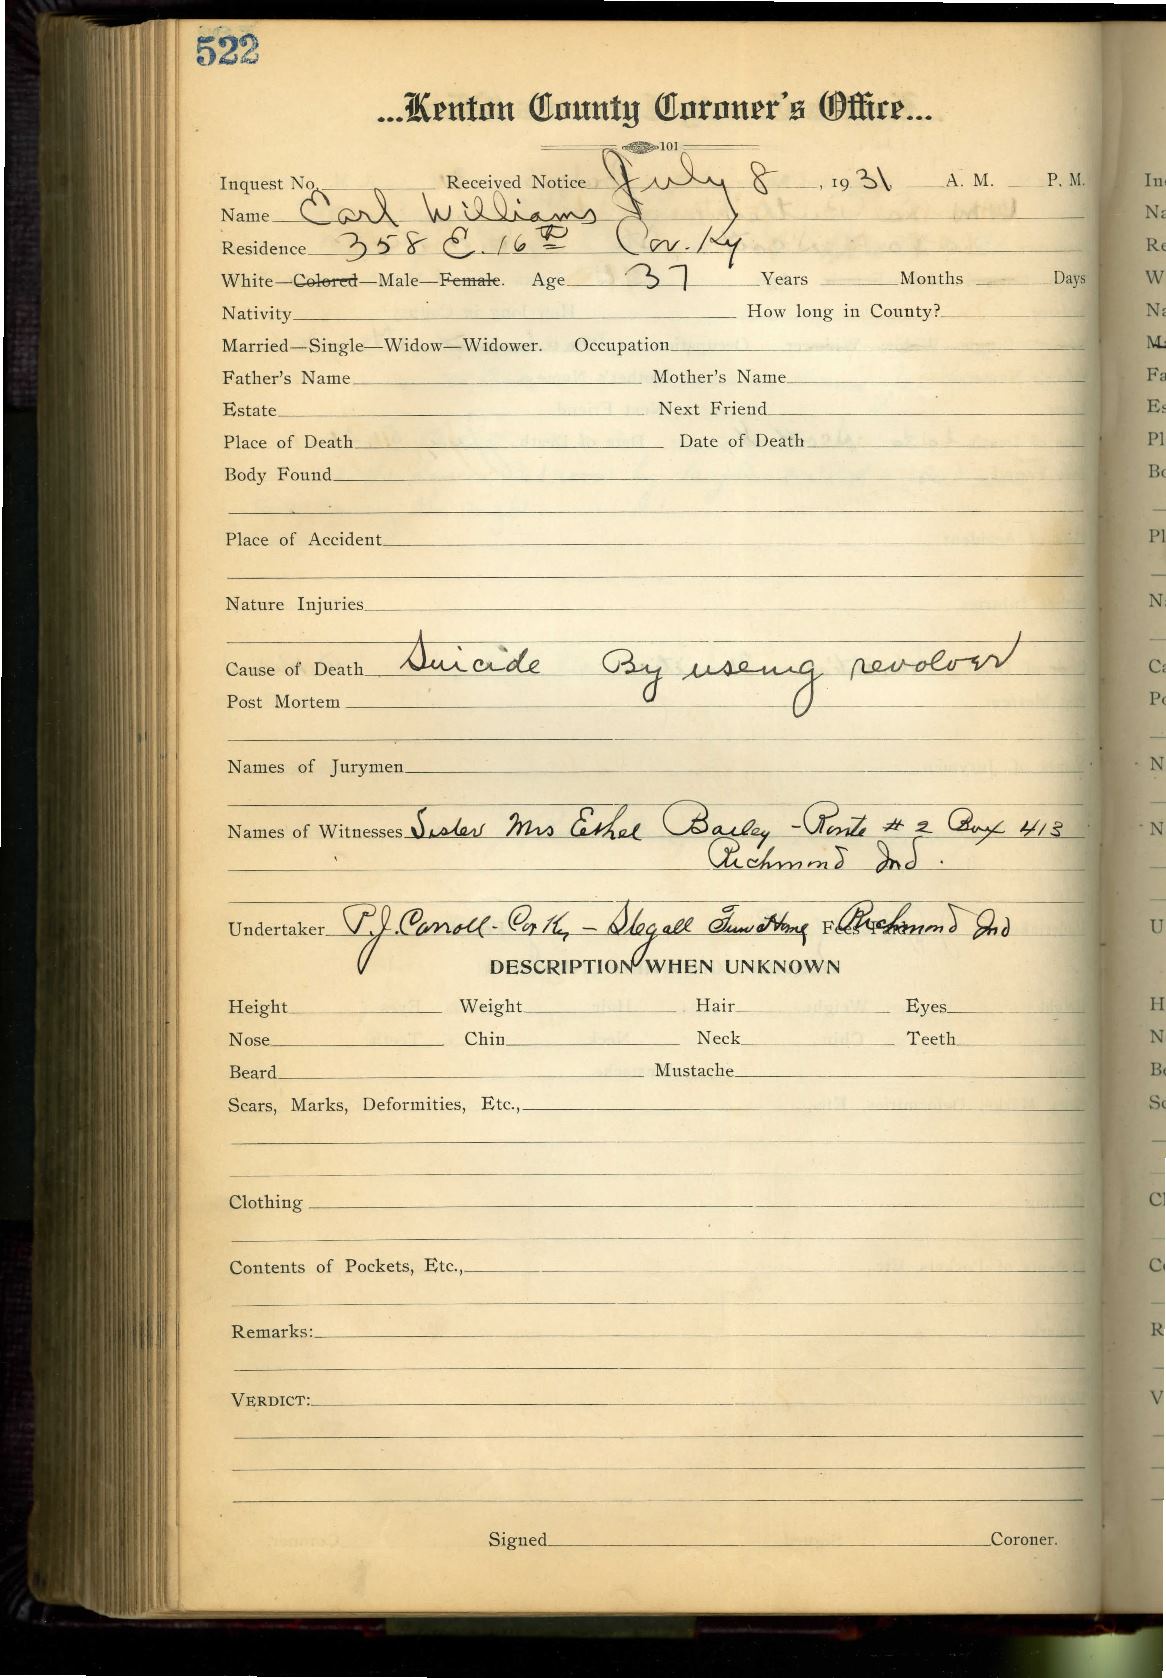 522
...Kenton County Coroner's Office...
101
Inquest No. Received Notice July 8, 1931 A. M. P. M.
Name Earl Williams
Residence 358 E. 16th Cov. Ky
White—Colored—Male—Female. Age 37 Years Months Days
Nativity How long in County?
Married—Single—Widow—Widower. Occupation
Father's Name Mother's Name
Estate Next Friend
Place of Death Date of Death
Body Found
Place of Accident
Nature Injuries
Cause of Death Suicide By useing revolver
Post Mortem
Names of Jurymen
Names of Witnesses Sister Mrs Ethel Bailey - Route # 2 Box 413
Richmond Ind.
Undertaker P.J. Carroll - Cov Ky - Stegall Fun Home Fees Richmond Ind
DESCRIPTION WHEN UNKNOWN
Height Weight Hair Eyes
Nose Chin Neck Teeth
Beard Mustache
Scars, Marks, Deformities, Etc.,
Clothing
Contents of Pockets, Etc.,
Remarks:
VERDICT:
Signed Coroner.